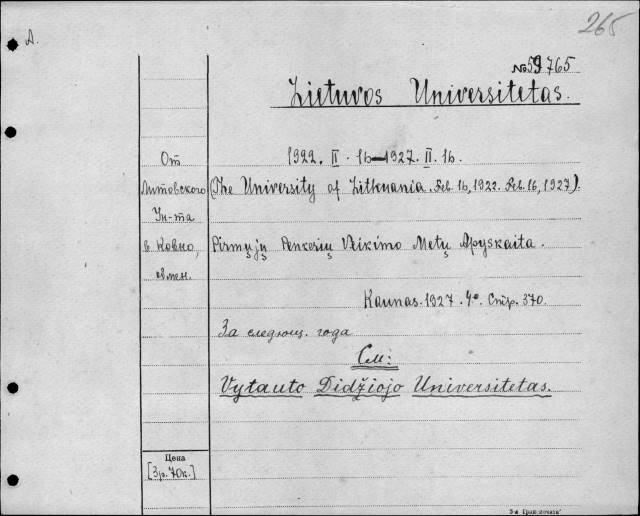 265
А.
№ 59765
Lietuvos Universitetas.
От
Литовского
Ун-та
в Ковно,
обмен.
1922. II. 16—1927. II. 16.
(The University of Lithuania. Feb. 16, 1922. Feb. 16, 1927).
Pirmųjų Penkerių Veikimo Metų Apyskaita.
Kaunas. 1927. 4°. Стр. 370.
За следующ. года
См:
Vytauto Didžiojo Universitetas.
Цена
[3р. 70к.]